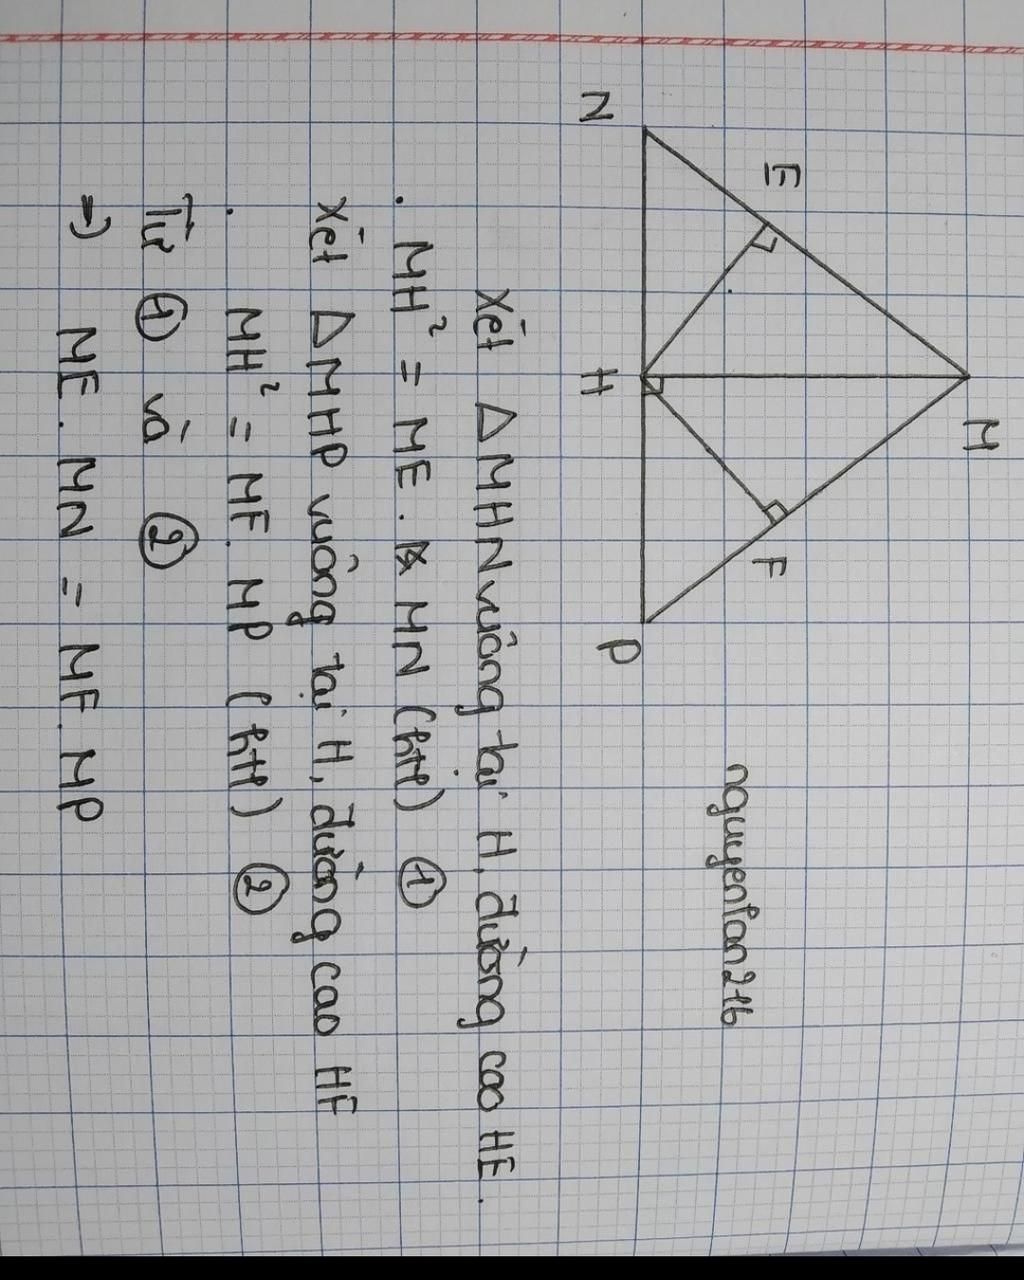 M
E
F
N
H
P
nguyenlan216
Xét ΔMHN vuông tại H, đường cao HE.
. MH² = ME. MN (htl) ①
Xét ΔMHP vuông tại H, đường cao HF
. MH² = MF. MP (htl) ②
Từ ① và ②
⇒ ME. MN = MF. MP